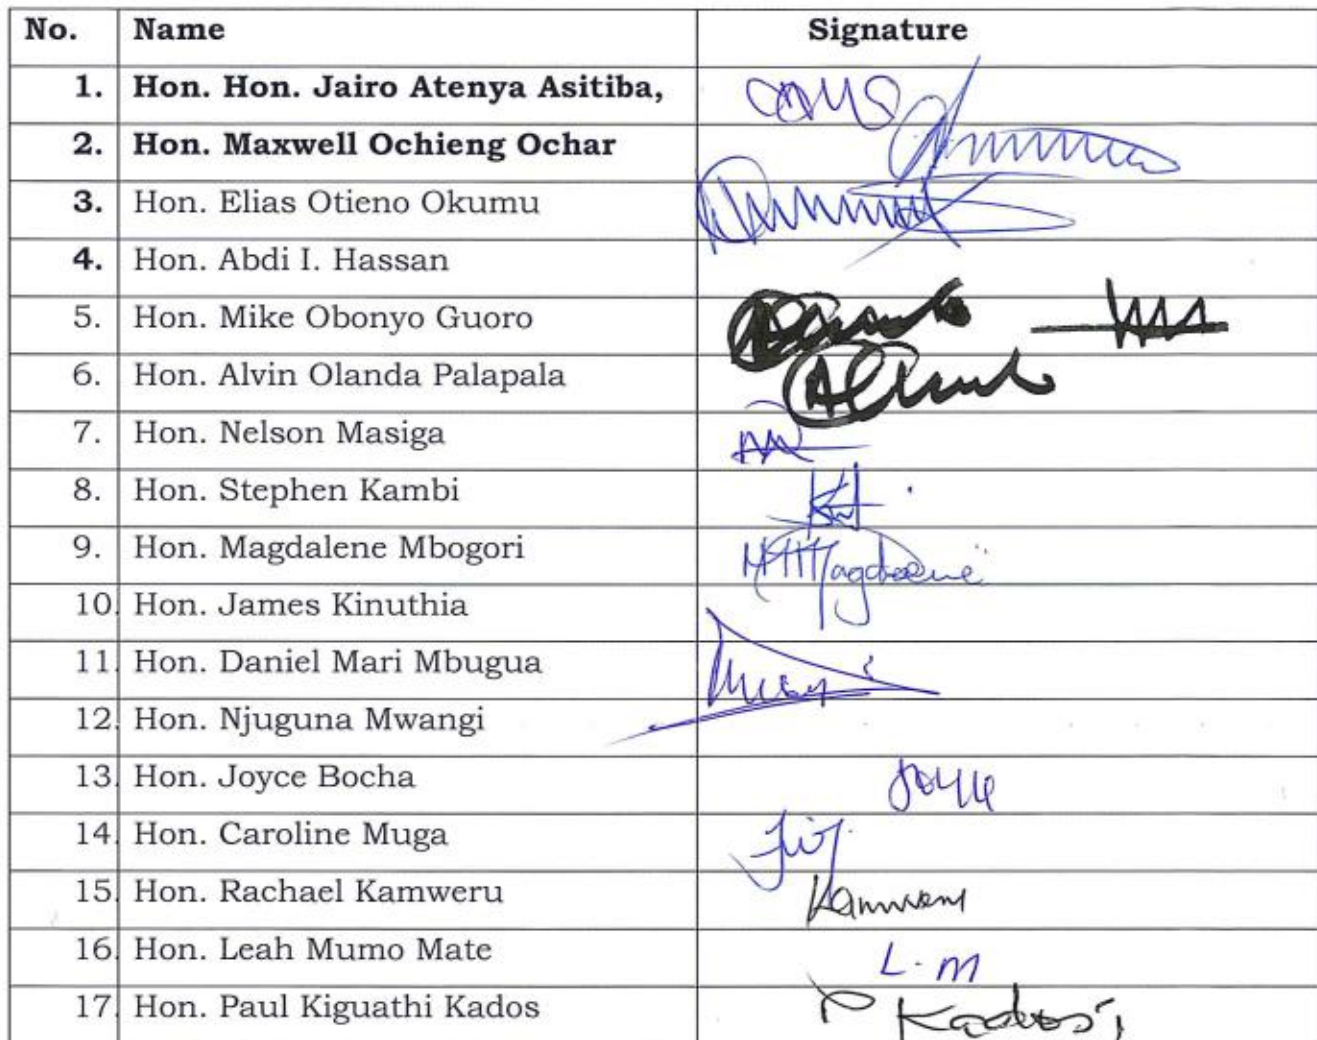 No. Name Signature
1. Hon. Hon. Jairo Atenya Asitiba,
2. Hon. Maxwell Ochieng Ochar
3. Hon. Elias Otieno Okumu
4. Hon. Abdi I. Hassan
5. Hon. Mike Obonyo Guoro
6. Hon. Alvin Olanda Palapala
7. Hon. Nelson Masiga
8. Hon. Stephen Kambi
9. Hon. Magdalene Mbogori
10. Hon. James Kinuthia
11. Hon. Daniel Mari Mbugua
12. Hon. Njuguna Mwangi
13. Hon. Joyce Bocha
14. Hon. Caroline Muga
15. Hon. Rachael Kamweru
16. Hon. Leah Mumo Mate L.M
17. Hon. Paul Kiguathi Kados